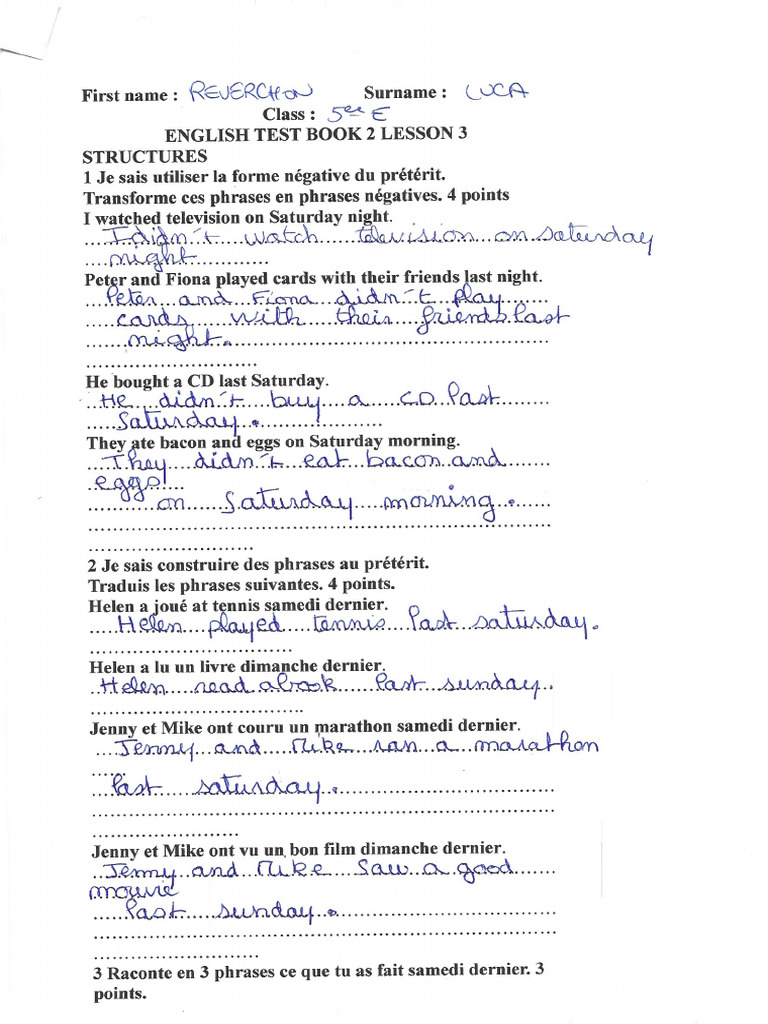 First name : REVERCHON Surname : LUCA
Class : 5ee E
ENGLISH TEST BOOK 2 LESSON 3
STRUCTURES
1 Je sais utiliser la forme négative du prétérit.
Transforme ces phrases en phrases négatives. 4 points
I watched television on Saturday night.
I didn't watch television on saturday
night
Peter and Fiona played cards with their friends last night.
Peter and Fiona didn't play
cards with their friends last
night.
He bought a CD last Saturday.
He didn't buy a CD last
Saturday.
They ate bacon and eggs on Saturday morning.
They didn't eat bacon and
eggs
on Saturday morning.
2 Je sais construire des phrases au prétérit.
Traduis les phrases suivantes. 4 points.
Helen a joué at tennis samedi dernier.
Helen played tennis last saturday.
Helen a lu un livre dimanche dernier.
Helen read a book last sunday.
Jenny et Mike ont couru un marathon samedi dernier.
Jenny and Mike ran a marathon
last saturday.
Jenny et Mike ont vu un bon film dimanche dernier.
Jenny and Mike saw a good
mouvie
last sunday.
3 Raconte en 3 phrases ce que tu as fait samedi dernier. 3
points.